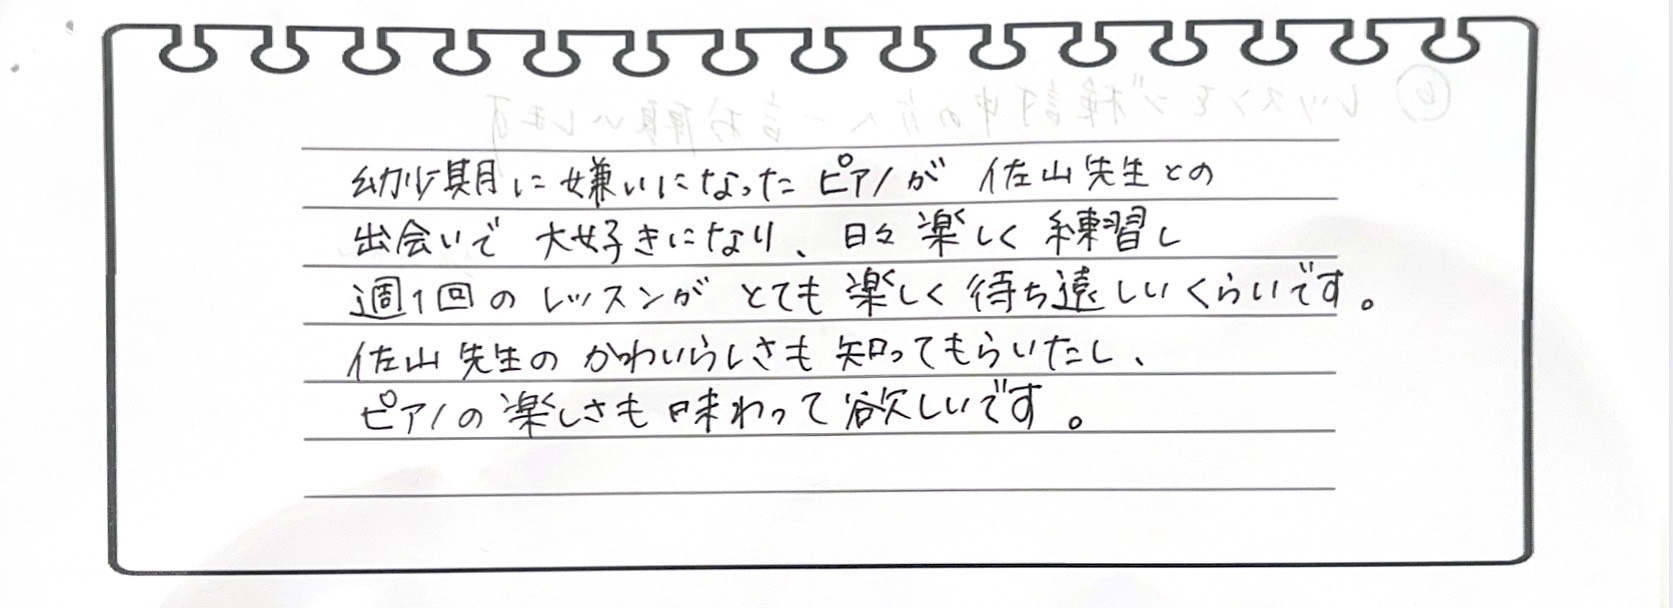 ⑥ レッスンをご検討中の方へ一言お願いします
幼少期に嫌いになったピアノが 佐山先生との
出会いで 大好きになり、日々楽しく 練習し
週1回の レッスンが とても 楽しく 待ち遠しいくらいです。
佐山先生の かわいらしさも 知ってもらいたし、
ピアノの 楽しさも 味わって 欲しいです。